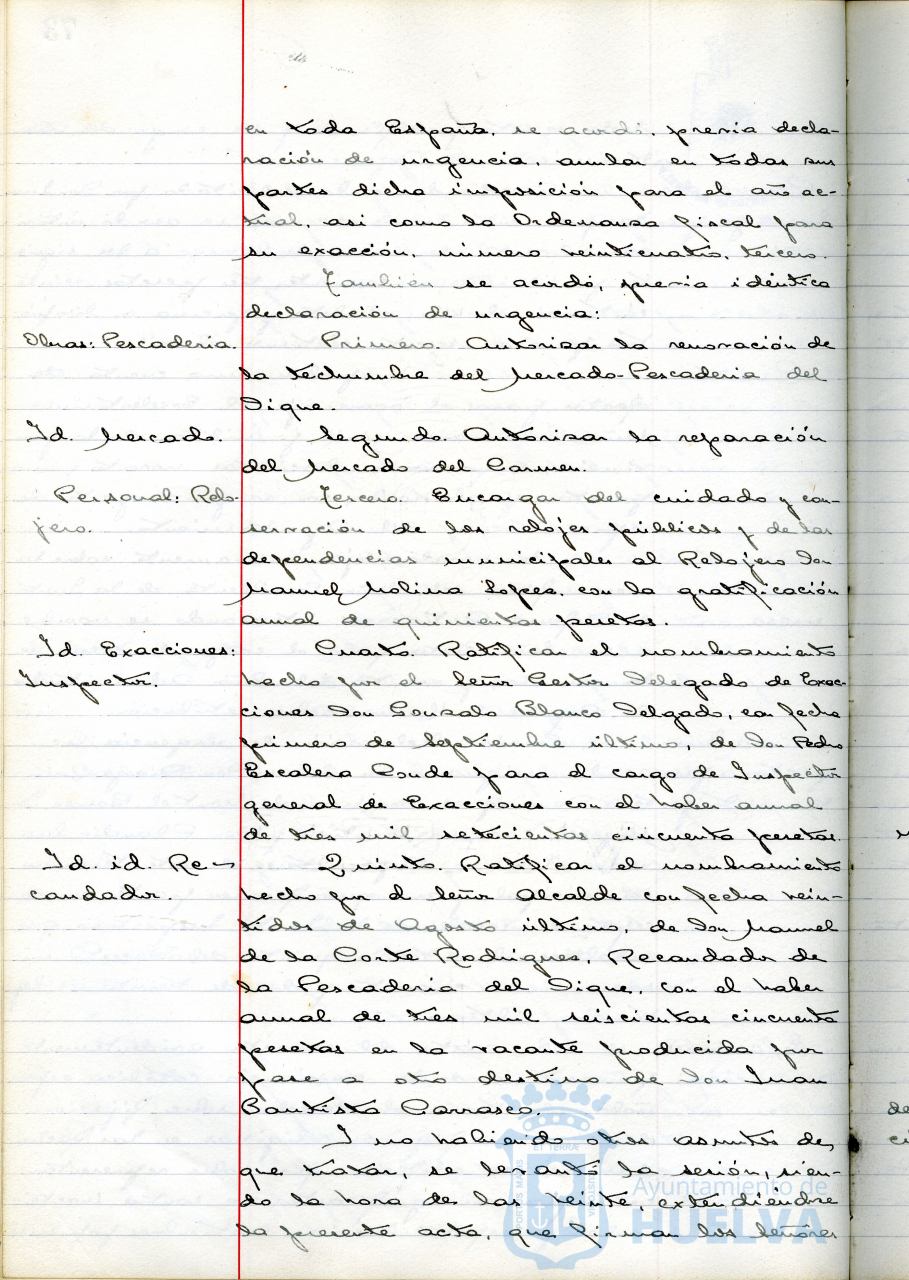 en toda España, se acordó, previa decla-
ración de urgencia, anular en todas sus
partes dicha imposición para el año ac-
tual, así como la Ordenanza fiscal para
su exacción, número veinticuatro, tercero.
También se acordó, previa idéntica
declaración de urgencia:
Obras: Pescaderia.
Primero. Autorizar la renovación de
la techumbre del Mercado-Pescaderia del
Dique.
Id. Mercado.
Segundo. Autorizar la reparación
del Mercado del Carmen.
Personal: Relo-
jero.
Tercero. Encargar del cuidado y con-
servación de los relojes públicos y de las
dependencias municipales al Relojero Don
Manuel Molina Lopez, con la gratificación
anual de quinientas pesetas.
Id. Exacciones:
Inspector.
Cuarto. Ratificar el nombramiento
hecho por el Señor Gestor Delegado de Exac-
ciones Don Gonzalo Blanco Delgado, con fecha
primero de Septiembre último, de Don Pedro
Escalera Conde para el cargo de Inspector
general de Exacciones con el haber anual
de tres mil setecientas cincuenta pesetas.
Id. id. Re-
caudador.
Quinto. Ratificar el nombramiento
hecho por el Señor Alcalde con fecha vein-
tidos de Agosto último, de Don Manuel
de la Corte Rodrigues, Recaudador de
la Pescaderia del Dique, con el haber
anual de tres mil seiscientas cincuenta
pesetas en la vacante producida por
pase a otro destino de Don Juan
Bautista Carrasco.
Y no habiendo otros asuntos de
que tratar, se levantó la sesión, sien-
do la hora de las veinte, extendiendose
la presente acta, que firman los Señores
Ayuntamiento de
HUELVA